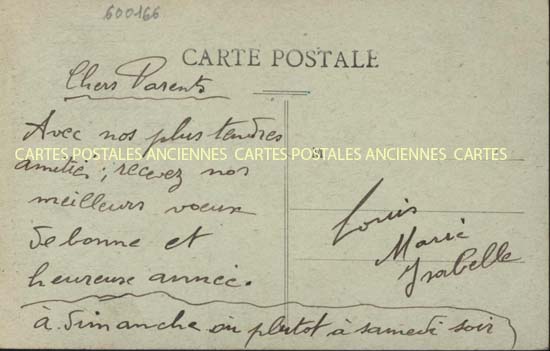 600166
CARTE POSTALE
Chers Parents
Avec nos plus tendres
CARTES POSTALES ANCIENNES CARTES POSTALES ANCIENNES CARTES
amitiés ; recevez nos
meilleurs voeux
de bonne et
heureuse année.
à dimanche ou plutot à samedi soir
Louis
Marie
Isabelle